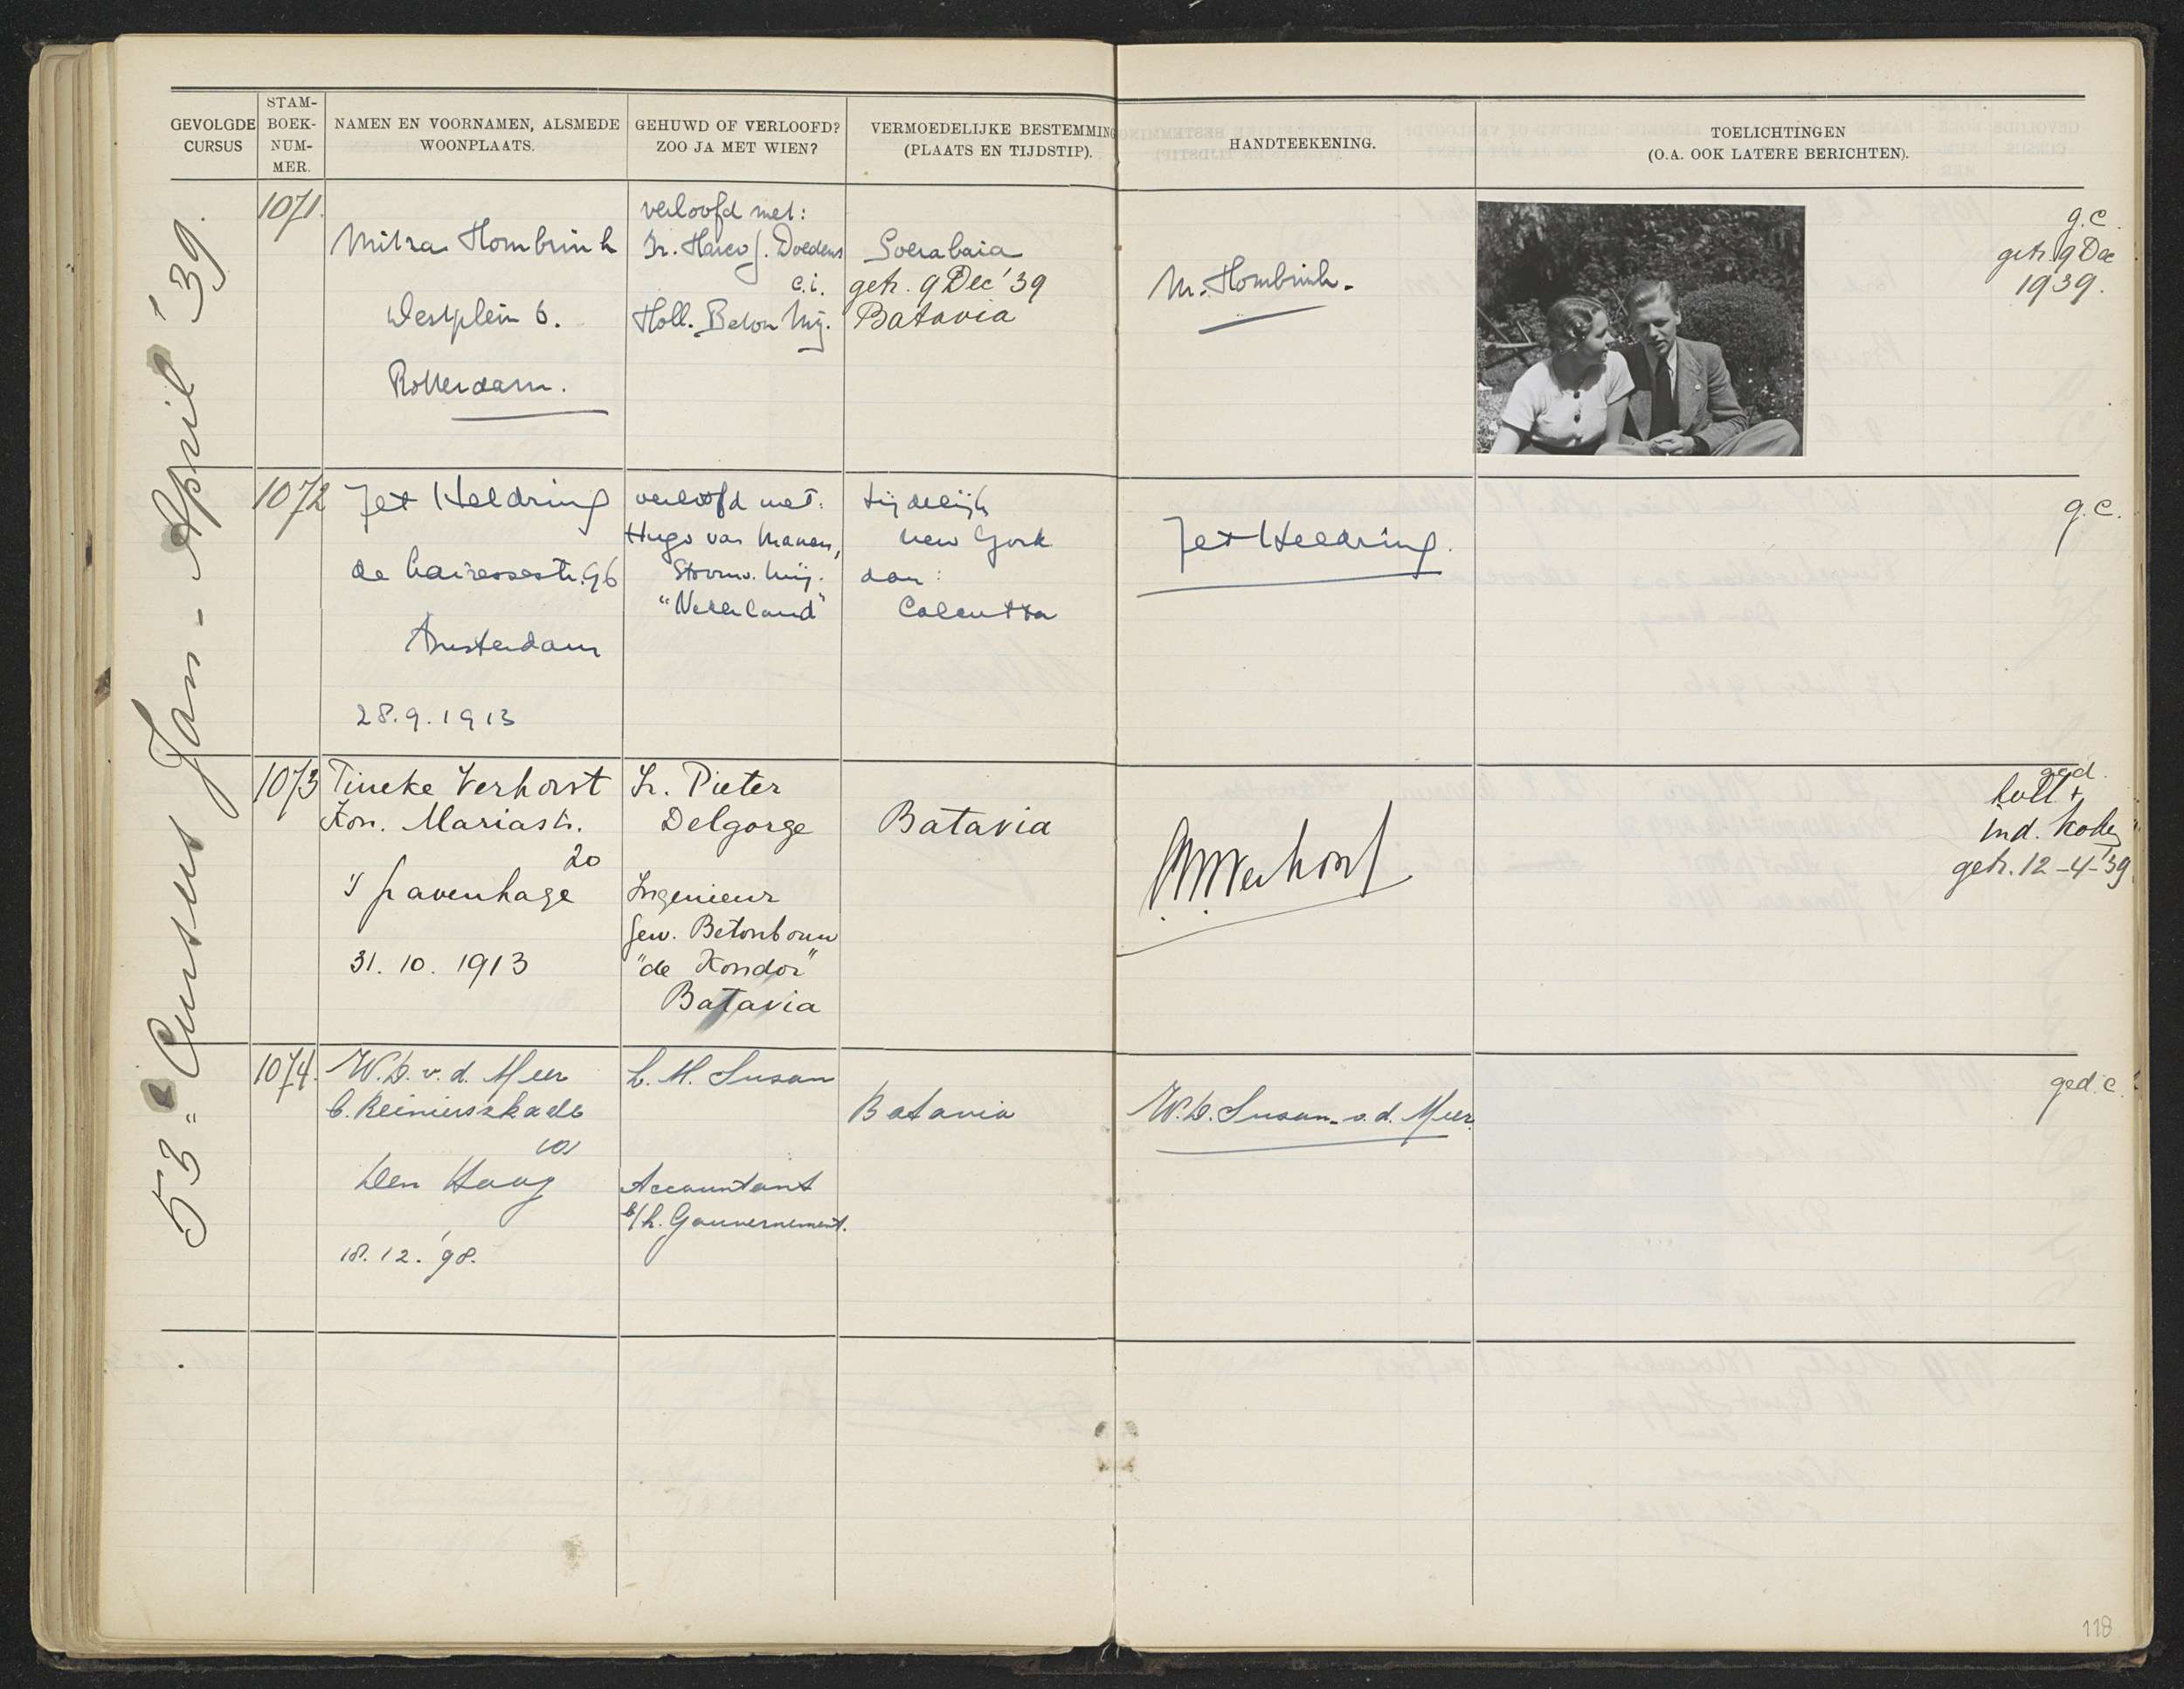 GEVOLGDE
CURSUS
STAM-
BOEK-
NUM-
MER.
NAMEN EN VOORNAMEN, ALSMEDE
WOONPLAATS.
GEHUWD OF VERLOOFD?
ZOO JA MET WIEN?
VERMOEDELIJKE BESTEMMING
(PLAATS EN TIJDSTIP).
HANDTEEKENING.
TOELICHTINGEN
(O.A. OOK LATERE BERICHTEN).
53e Cursus Jan - April '39.
1071.
Mitra Hombrink
Westplein 6.
Rotterdam.
verloofd met:
Ir. Heico J. Doedens
c.i.
Holl. Beton Mij.
Soerabaia
getr. 9 Dec '39
Batavia
M. Hombrink.
g.c.
getr. 9 Dec
1939.
1072
Jet Heldring
de Lairessestr. 96
Amsterdam
28.9.1913
verloofd met:
Hugo van Manen,
Stoomv. Mij.
"Nederland"
tijdelijk
New York
dan:
Calcutta
Jet Heldring.
g.c.
1073
Tineke Verhorst
Kon. Mariastr.
20
's Gravenhage
31.10.1913
Ir. Pieter
Delgorge
Ingenieur
Gew. Betonbouw
"de Kondor"
Batavia
Batavia
Verhorst
ged.
holl +
ind. koken
getr. 12-4-'39
1074.
W.D. v. d. Meer
C. Reinierszkade
Den Haag
18.12.'98.
L. M. Susan
Accountant
b/h. Gouvernement.
Batavia
W.D. Susan-v.d. Meer.
ged. c.
118